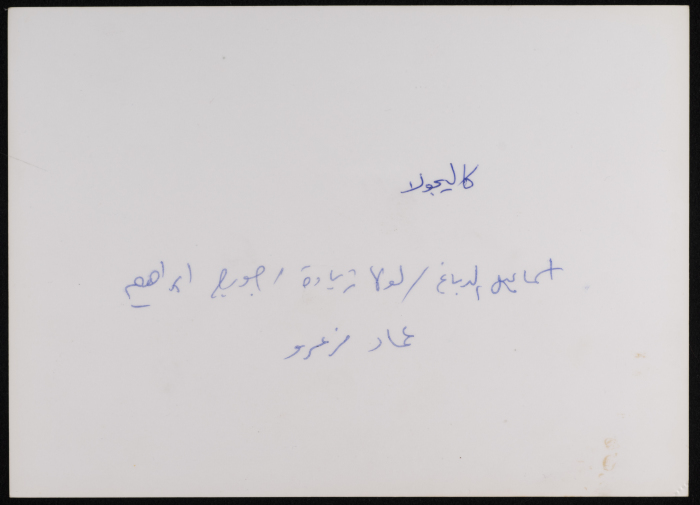 كاليجولا
اسماعيل الدباغ / لولا زيادة / جورج ابراهيم
عماد مزعرو